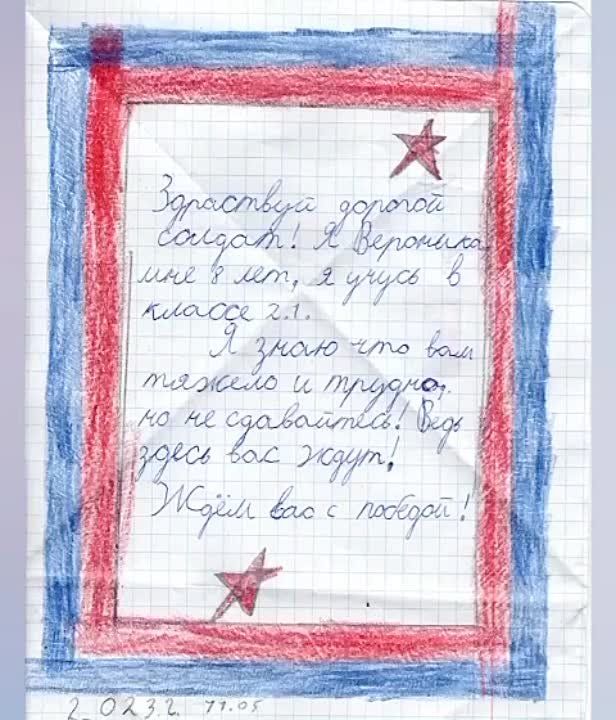 Здраствуй дорогой
солдат! Я Вероника
мне 8 лет, я учусь в
классе 2.1.
Я знаю что вам
тяжело и трудно,
но не сдавайтесь! Ведь
здесь вас ждут!
Ждём вас с победой!
2023г. 11.05